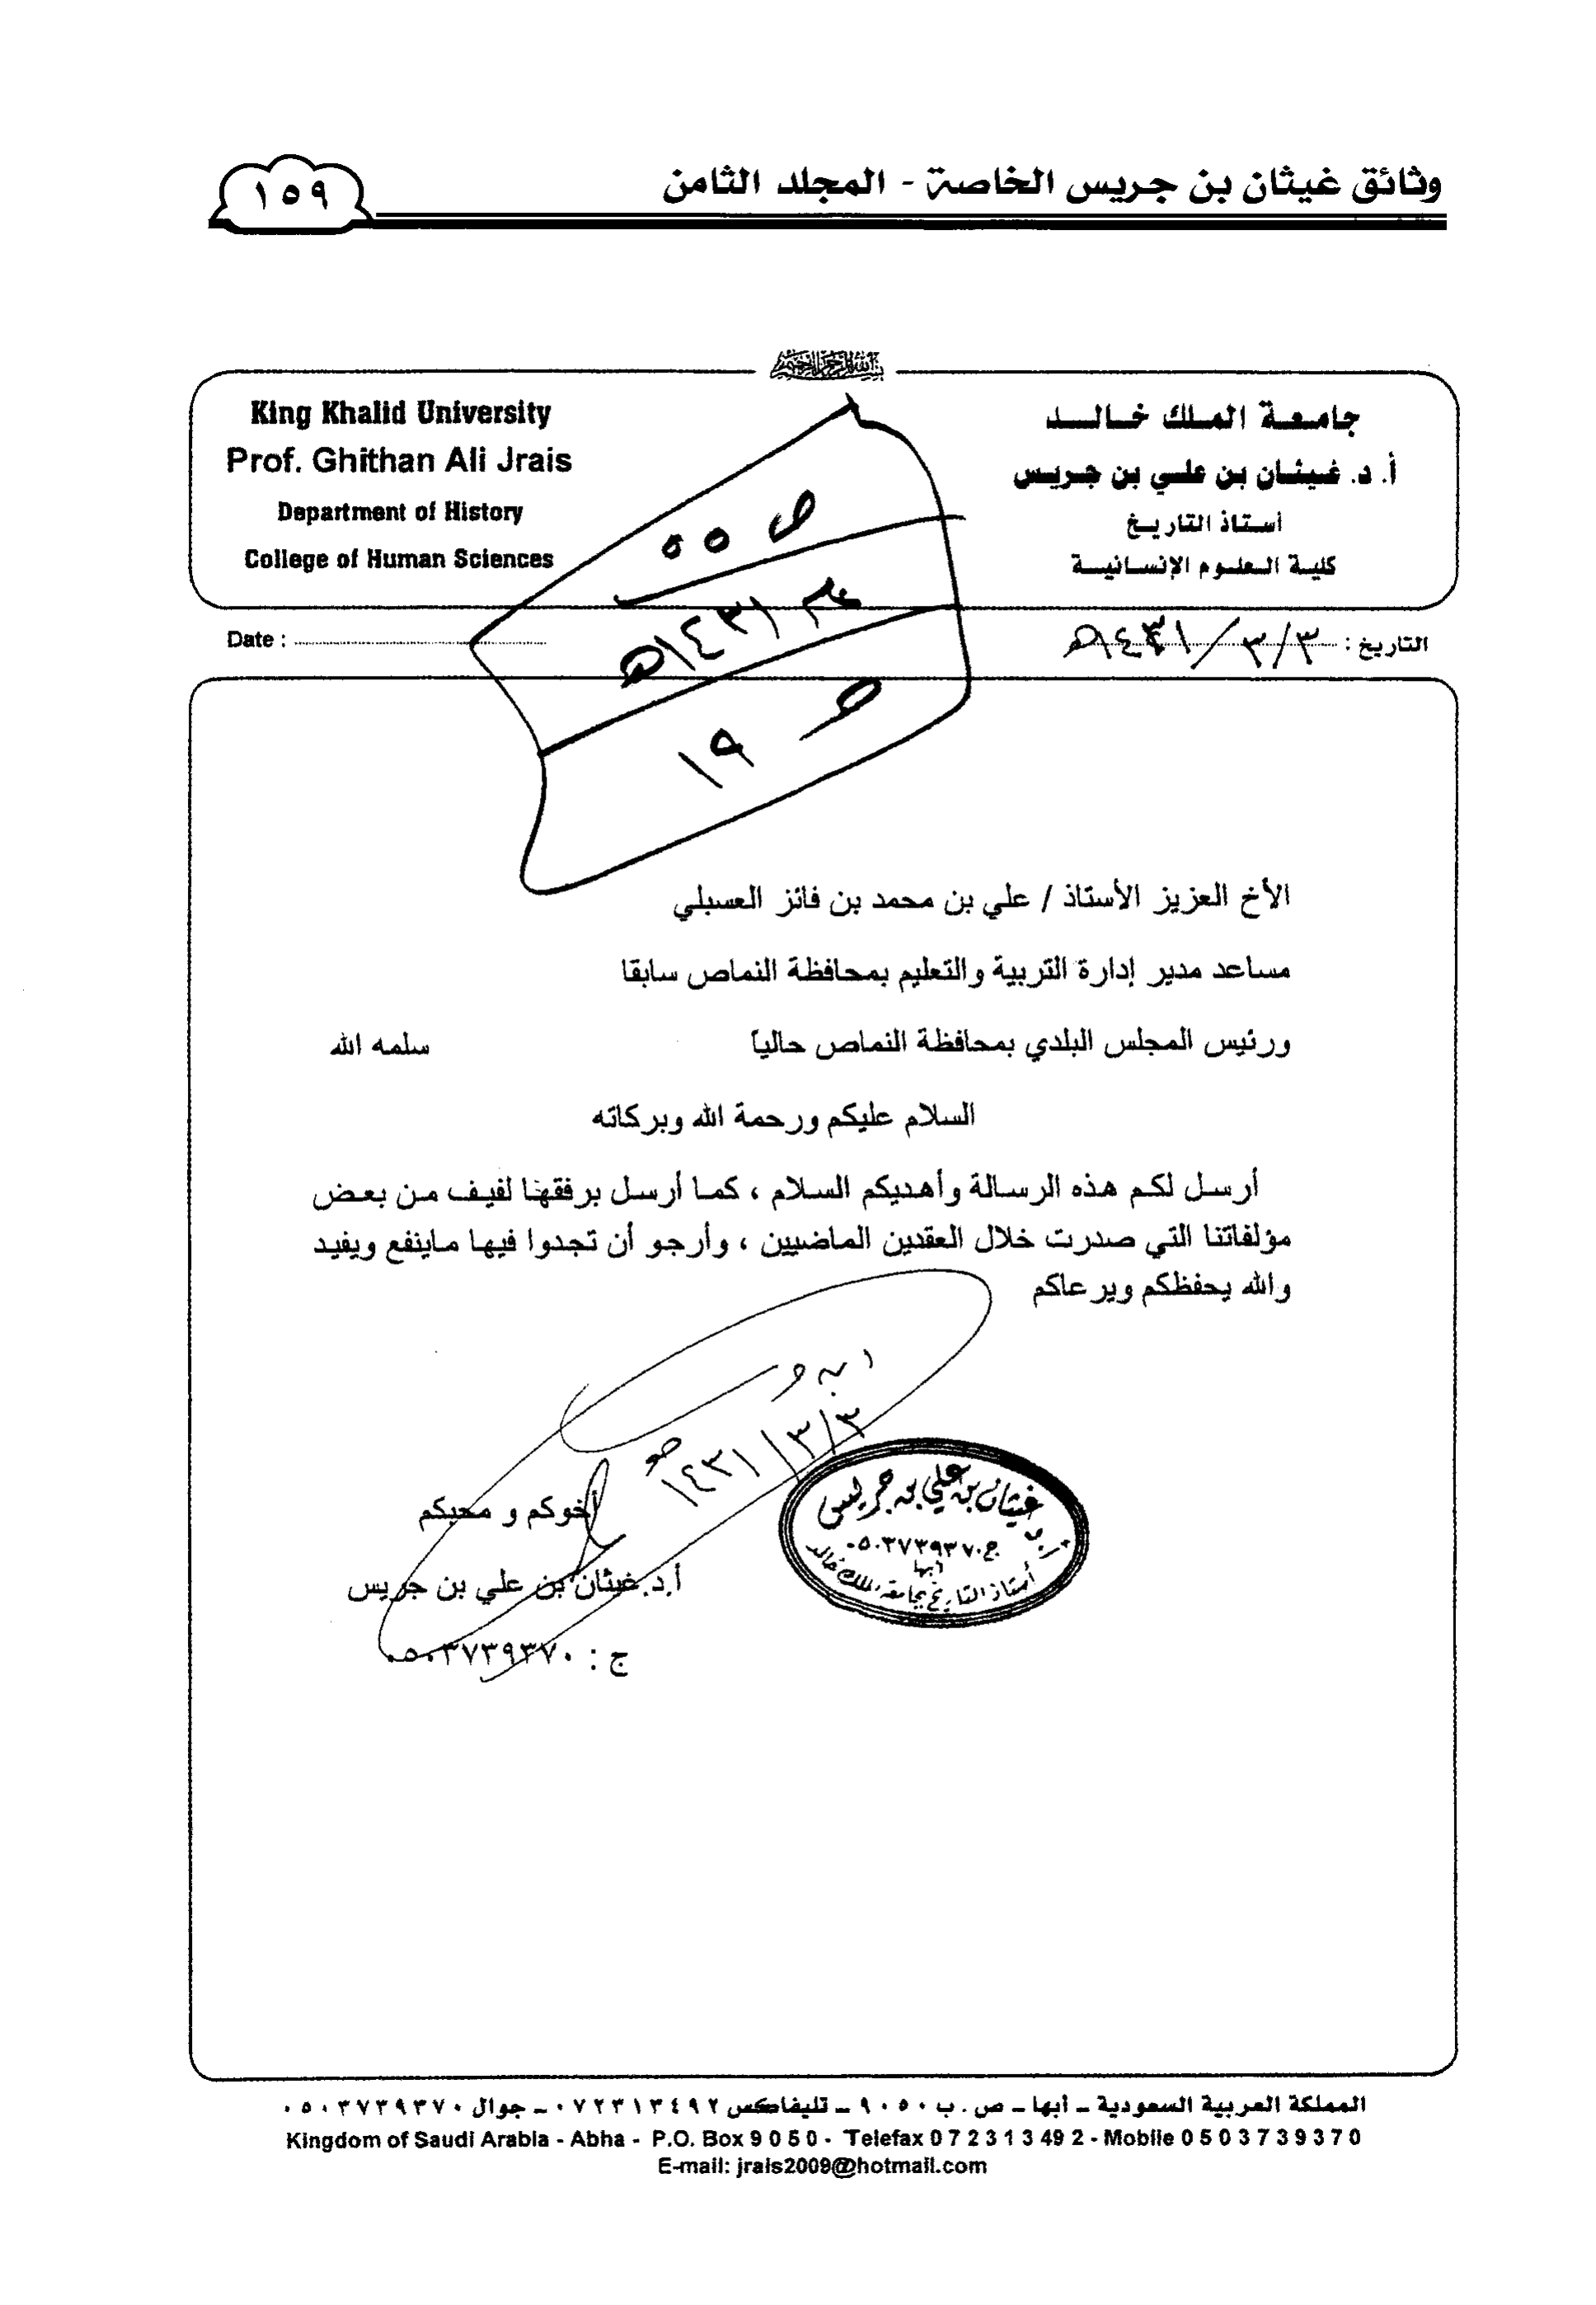 وثائق غيثان بن جريس الخاصة - المجلد الثامن
١٥٩
بسم الله الرحمن الرحيم
جامعة الملك خالد
أ. د. غيثان بن علي بن جريس
أستاذ التاريخ
كلية العلوم الإنسانية
King Khalid University
Prof. Ghithan Ali Jrais
Department of History
College of Human Sciences
التاريخ : ٣/٣/١٤٣١هـ
Date :
ص ٥٥
١٤٣١هـ
١٩
الأخ العزيز الأستاذ / علي بن محمد بن فائز العسبلي
مساعد مدير إدارة التربية والتعليم بمحافظة النماص سابقا
ورئيس المجلس البلدي بمحافظة النماص حالياً سلمه الله
السلام عليكم ورحمة الله وبركاته
أرسل لكم هذه الرسالة وأهديكم السلام ، كما أرسل برفقها لفيف من بعض
مؤلفاتنا التي صدرت خلال العقدين الماضيين ، وأرجو أن تجدوا فيها ماينفع ويفيد
والله يحفظكم ويرعاكم
٣/٣/١٤٣١هـ
أخوكم و محبكم
أ.د.غيثان بن علي بن جريس
ج : ٠٥٠٣٧٣٩٣٧٠
أ.د غيثان بن علي بن جريس
ج.٠٥٠٣٧٣٩٣٧٠
أبها
أستاذ التاريخ بجامعة الملك خالد
المملكة العربية السعودية – أبها – ص . ب ٩٠٥٠ – تليفاكس ٠٧٢٣١٣٤٩٢ – جوال ٠٥٠٣٧٣٩٣٧٠
Kingdom of Saudi Arabia - Abha - P.O. Box 9 0 5 0 - Telefax 0 7 2 3 1 3 49 2 - Mobile 0 5 0 3 7 3 9 3 7 0
E-mail: jrais2009@hotmail.com